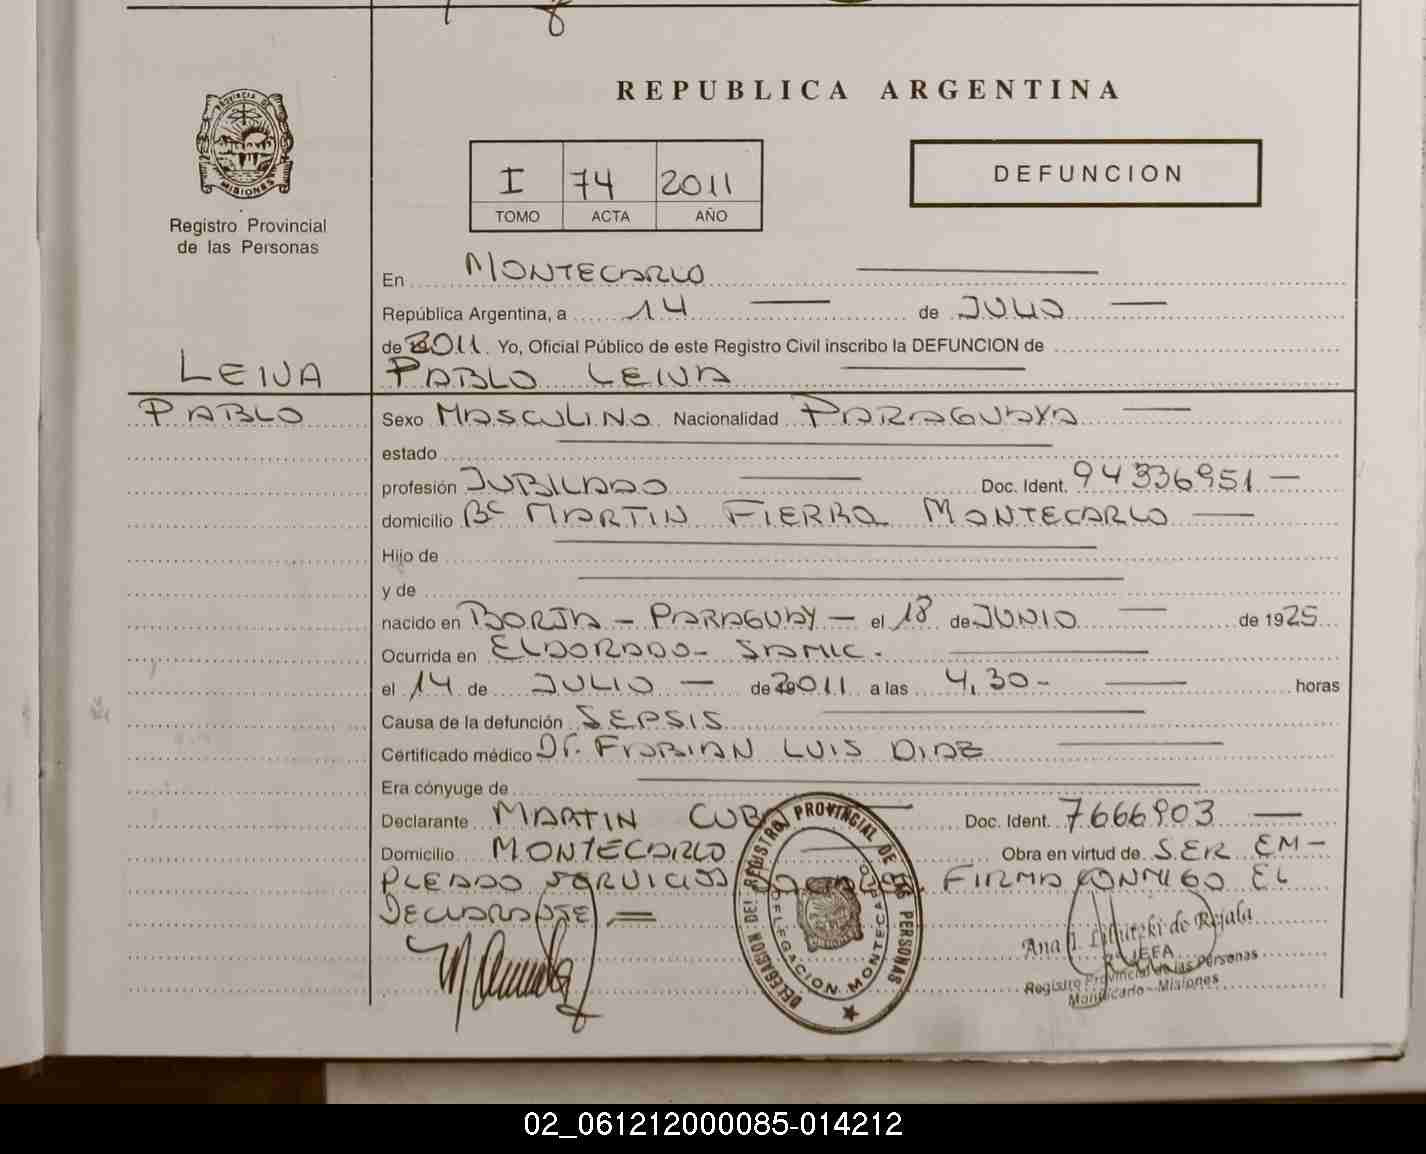 REPUBLICA ARGENTINA
PROVINCIA DE MISIONES
Registro Provincial
de las Personas
I 74 2011
TOMO ACTA AÑO
DEFUNCION
En MONTECARLO
República Argentina, a 14 de JULIO
de 2011. Yo, Oficial Público de este Registro Civil inscribo la DEFUNCION de
LEIVA
PABLO LEIVA
PABLO
Sexo MASCULINO Nacionalidad PARAGUAYA
estado
profesión JUBILADO Doc. Ident. 94336951
domicilio Bº MARTIN FIERRO MONTECARLO
Hijo de
y de
nacido en BORJA - PARAGUAY - el 18 de JUNIO de 1925
Ocurrida en ELDORADO - SAMIC.
el 14 de JULIO de 2011 a las 4,30 - horas
Causa de la defunción SEPSIS
Certificado médico Dr. FABIAN LUIS DIAZ
Era cónyuge de
Declarante MARTIN Doc. Ident. 7666903
Domicilio MONTECARLO Obra en virtud de SER EM-
PLEADO SERVICIOS FIRMA CONMIGO EL
DECLARANTE
DELEGACION DEL REGISTRO PROVINCIAL DE LAS PERSONAS
DELEGACION MONTECARLO
Ana de Rejala
JEFA
Registro Provincial de las Personas
Montecarlo - Misiones
02_061212000085-014212